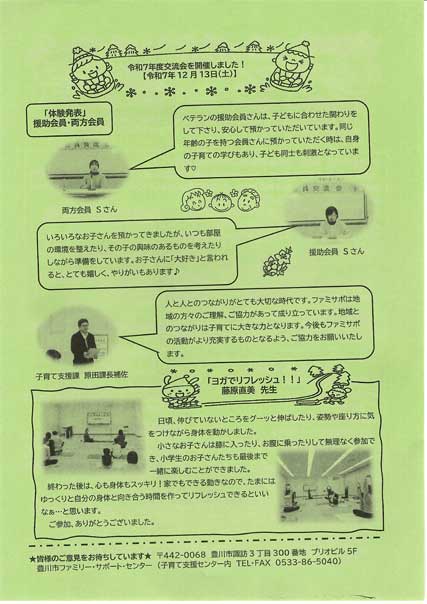 令和7年度交流会を開催しました!
【令和7年12月13日(土)】
「体験発表」
援助会員・両方会員
ベテランの援助会員さんは、子どもに合わせた関わりを
して下さり、安心して預かっていただいています。同じ
年齢の子を持つ会員さんに預かっていただく時は、自身
の子育ての学びもあり、子ども同士も刺激となっていま
す♡
両方会員 Sさん
いろいろなお子さんを預かってきましたが、いつも部屋
の環境を整えたり、その子の興味のあるものを考えたり
しながら準備をしています。お子さんに「大好き」と言われ
ると、とても嬉しく、やりがいもあります♪
援助会員 Sさん
人と人とのつながりがとても大切な時代です。ファミサポは地
域の方々のご理解、ご協力があって成り立っています。地域と
のつながりは子育てに大きな力となります。今後もファミサポ
の活動がより充実するものとなるよう、ご協力をお願いいたし
ます。
子育て支援課 原田課長補佐
「ヨガでリフレッシュ!!」
藤原直美 先生
日頃、伸びていないところをグーッと伸ばしたり、姿勢や座り方に気
をつけながら身体を動かしました。
小さなお子さんは膝に入ったり、お腹に乗ったりして無理なく参加で
き、小学生のお子さんたちも最後まで
一緒に楽しむことができました。
終わった後は、心も身体もスッキリ!家でもできる動きなので、たまには
ゆっくりと自分の身体と向き合う時間を作ってリフレッシュできるといい
なぁ…と思います。
ご参加、ありがとうございました。
★皆様のご意見をお待ちしています★ 〒442-0068 豊川市諏訪3丁目300番地 プリオビル5F
豊川市ファミリー・サポート・センター (子育て支援センター内 TEL・FAX 0533-86-5040)